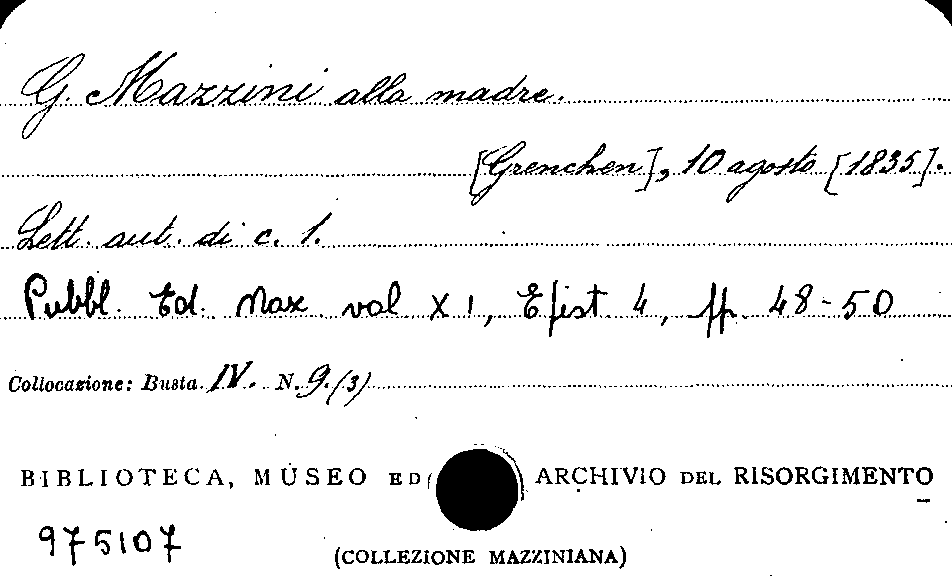 G. Mazzini alla madre.
[Grenchen], 10 agosto [1835].
Lett. aut. di c. 1.
Pubbl. Ed. Naz. vol XI, Epist. 4, pp. 48-50
Collocazione: Busta IV. N. 9.(3)
BIBLIOTECA, MUSEO ED ARCHIVIO DEL RISORGIMENTO
975107
(COLLEZIONE MAZZINIANA)